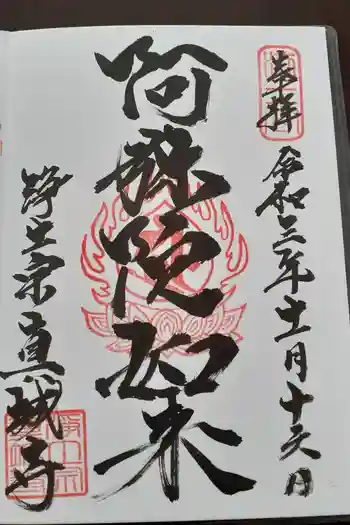 奉拝
令和三年十一月十六日
阿弥陀如来
浄土宗真城寺